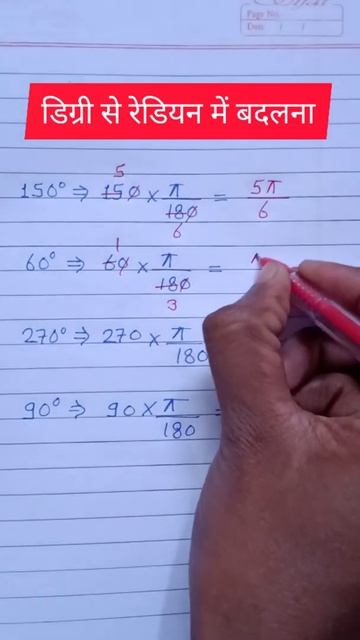 Page No.
Date / /
डिग्री से रेडियन में बदलना
150° ⇒ 150 × π/180 = 5π/6
5
6
60° ⇒ 60 × π/180 =
1
3
270° ⇒ 270 × π/180
90° ⇒ 90 × π/180 =